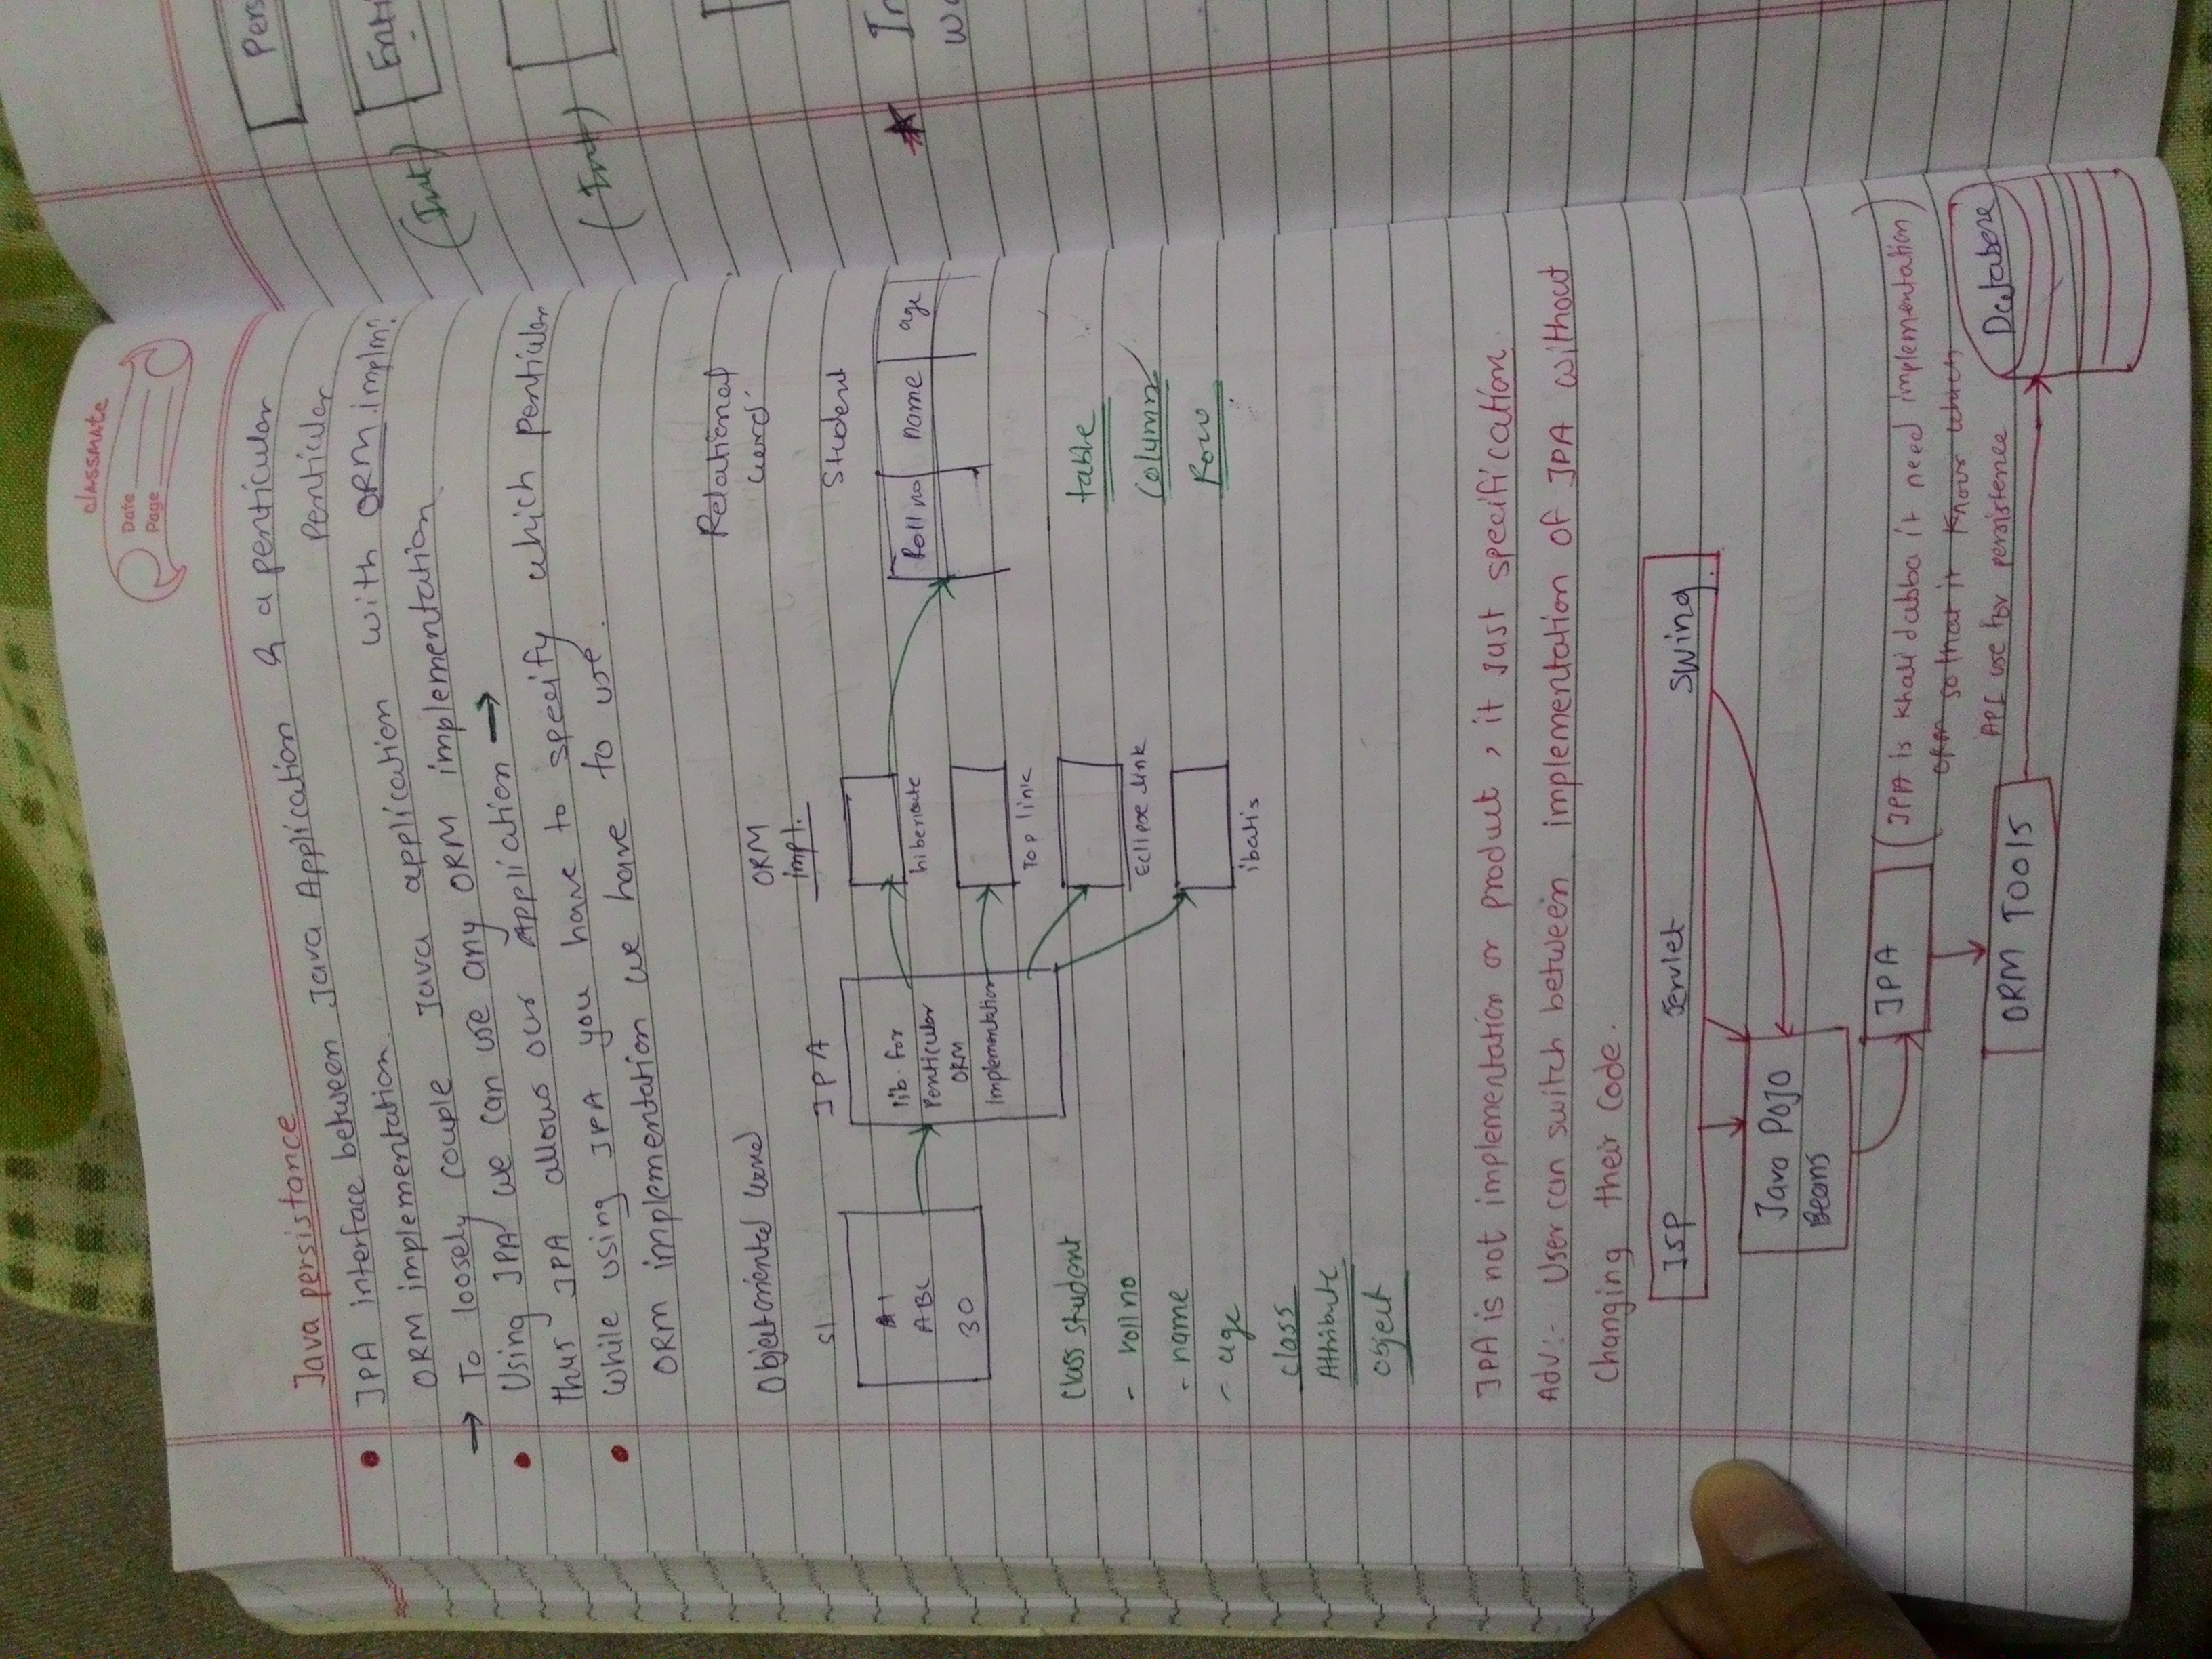 classmate
Date
Page
Java persistance
JPA interface between Java Application & a penticular
ORM implementation. penticular
→ To loosely couple Java application with ORM implmn
Using JPA we can use any ORM implementation
thus JPA allows our Appliation →
while using JPA you have to specify which penticular
ORM implementation we have to use.
Object oriented
ORM
impl.
Relational
S1
JPA
Student
A1
ABC
30
lib. for
Penticular
ORM
implementation
hibernate
Top link
Eclipse link
ibatis
Roll no name age
class student
- roll no
- name
- age
class
Attribute
object
table
column
Row
JPA is not implementation or product, it just specification.
Adv:- User can switch between implementation of JPA without
changing their code.
JSP Servlet Swing
Java POJO
Beans
JPA
(JPA is khali dabba it need implementation)
ORM so that it know which
API use for persistence
ORM TOOLS
Database
Pers
(Int)
Enti
(Int)
In